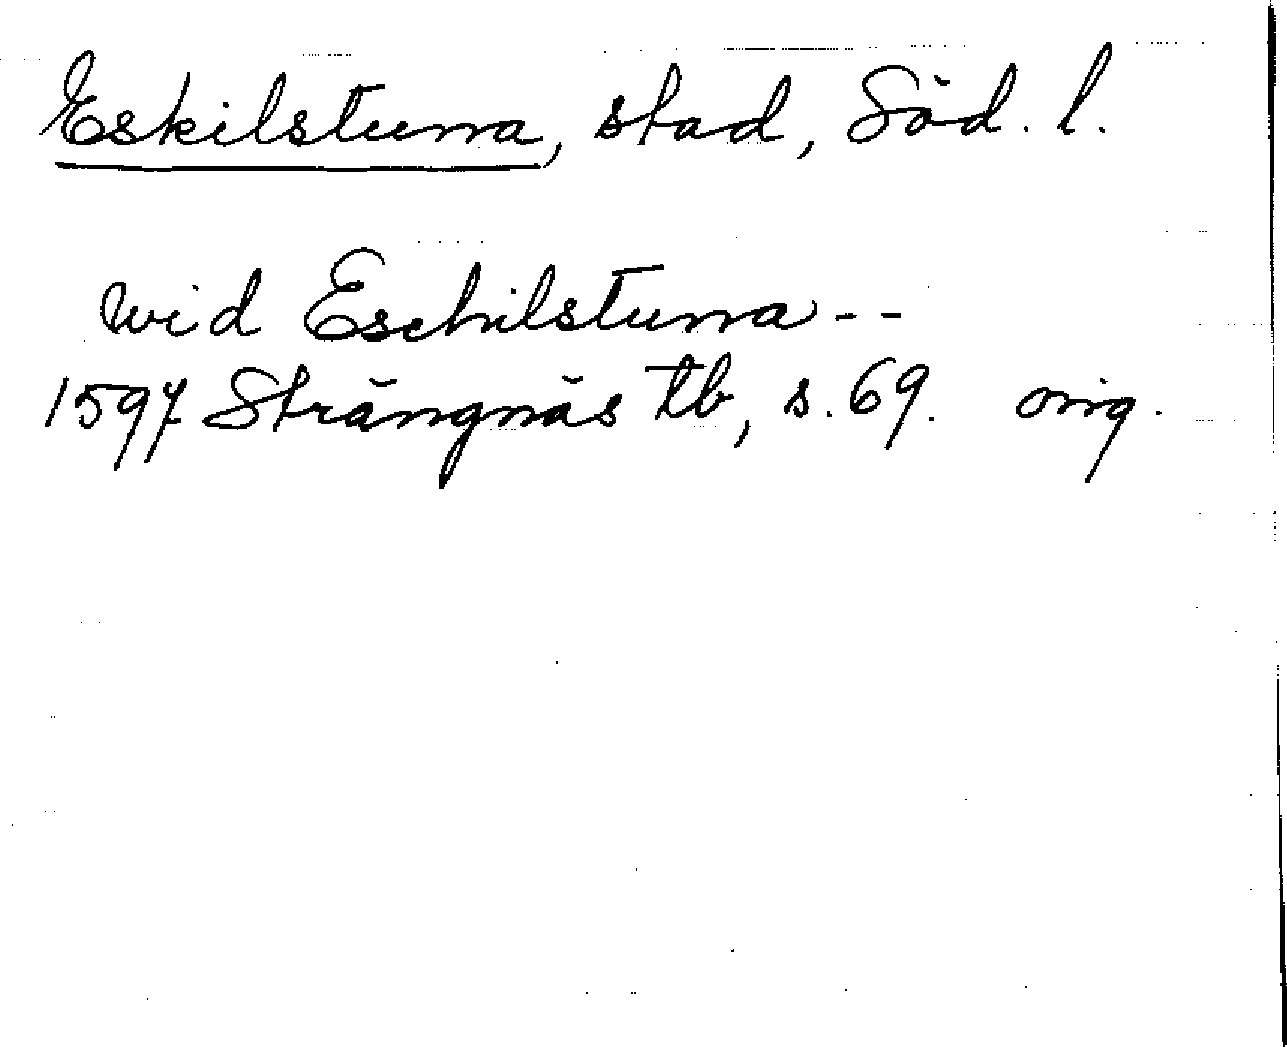 Eskilstuna, stad, Söd. l.
wid Eschilstuna --
1597 Strängnäs tb, s. 69. orig.